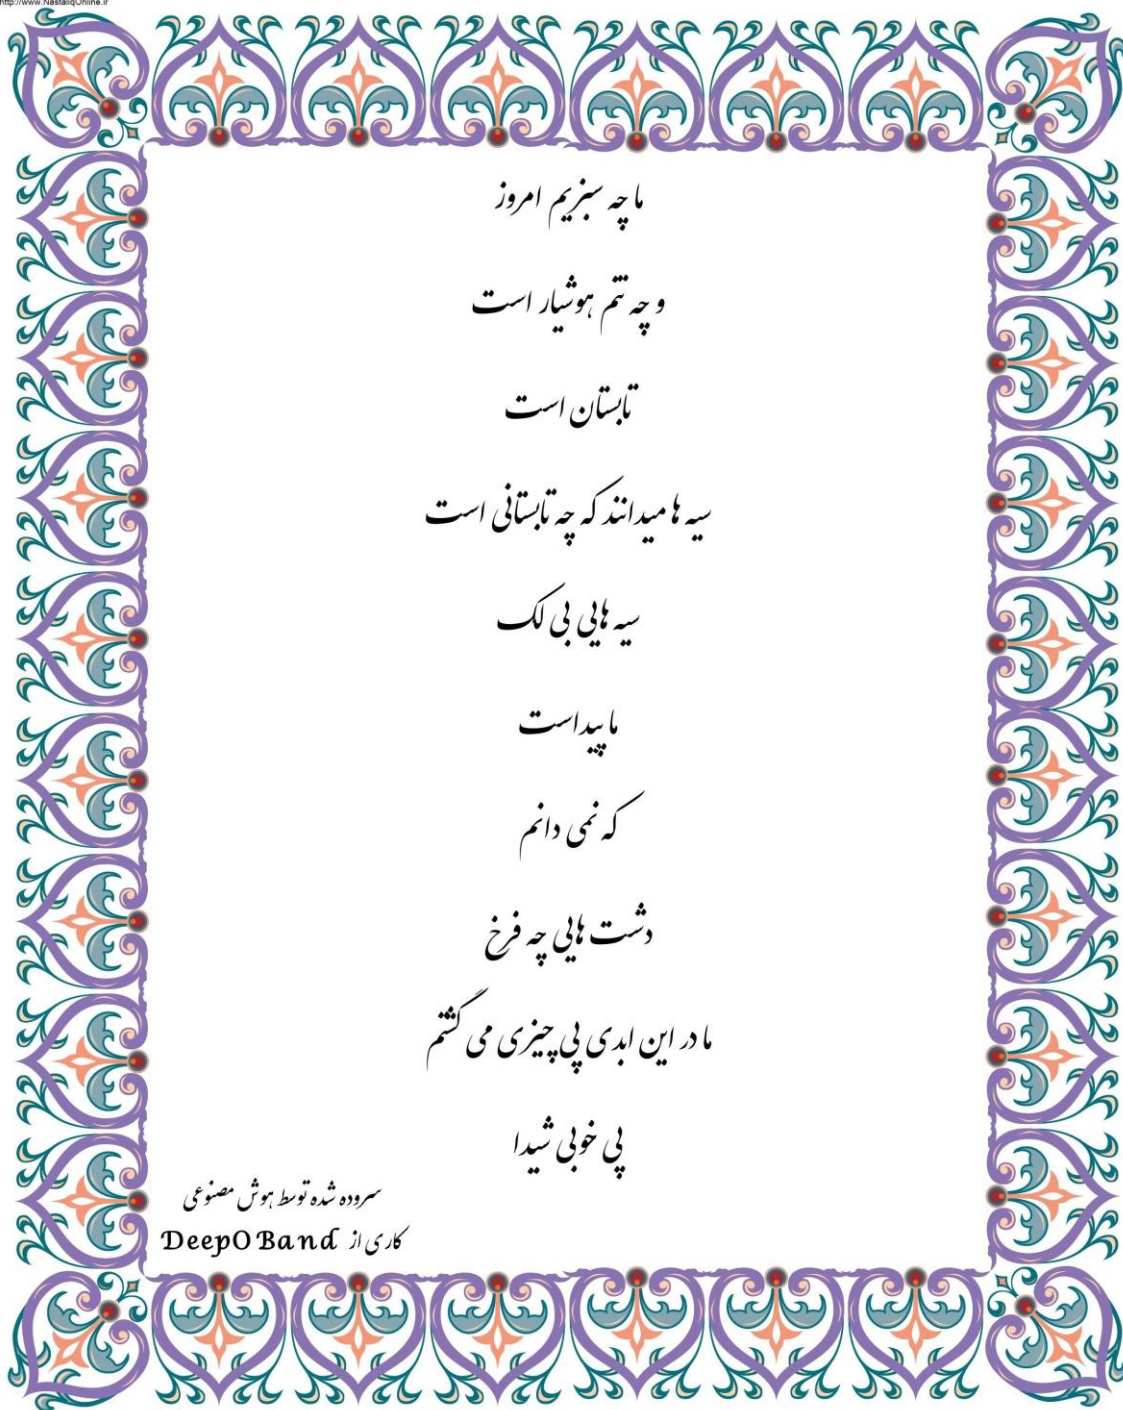 http://www.NastaliqOnline.ir
ما چه سبزیم امروز
و چه تنم هوشیار است
تابستان است
سیه ها میدانند که چه تابستانی است
سیه هایی بی لک
ما پیداست
که نمی دانم
دشت هایی چه فرخ
ما در این ابدی پی چیزی می گشتم
پی خوبی شیدا
سروده شده توسط هوش مصنوعی
کاری از DeepOBand